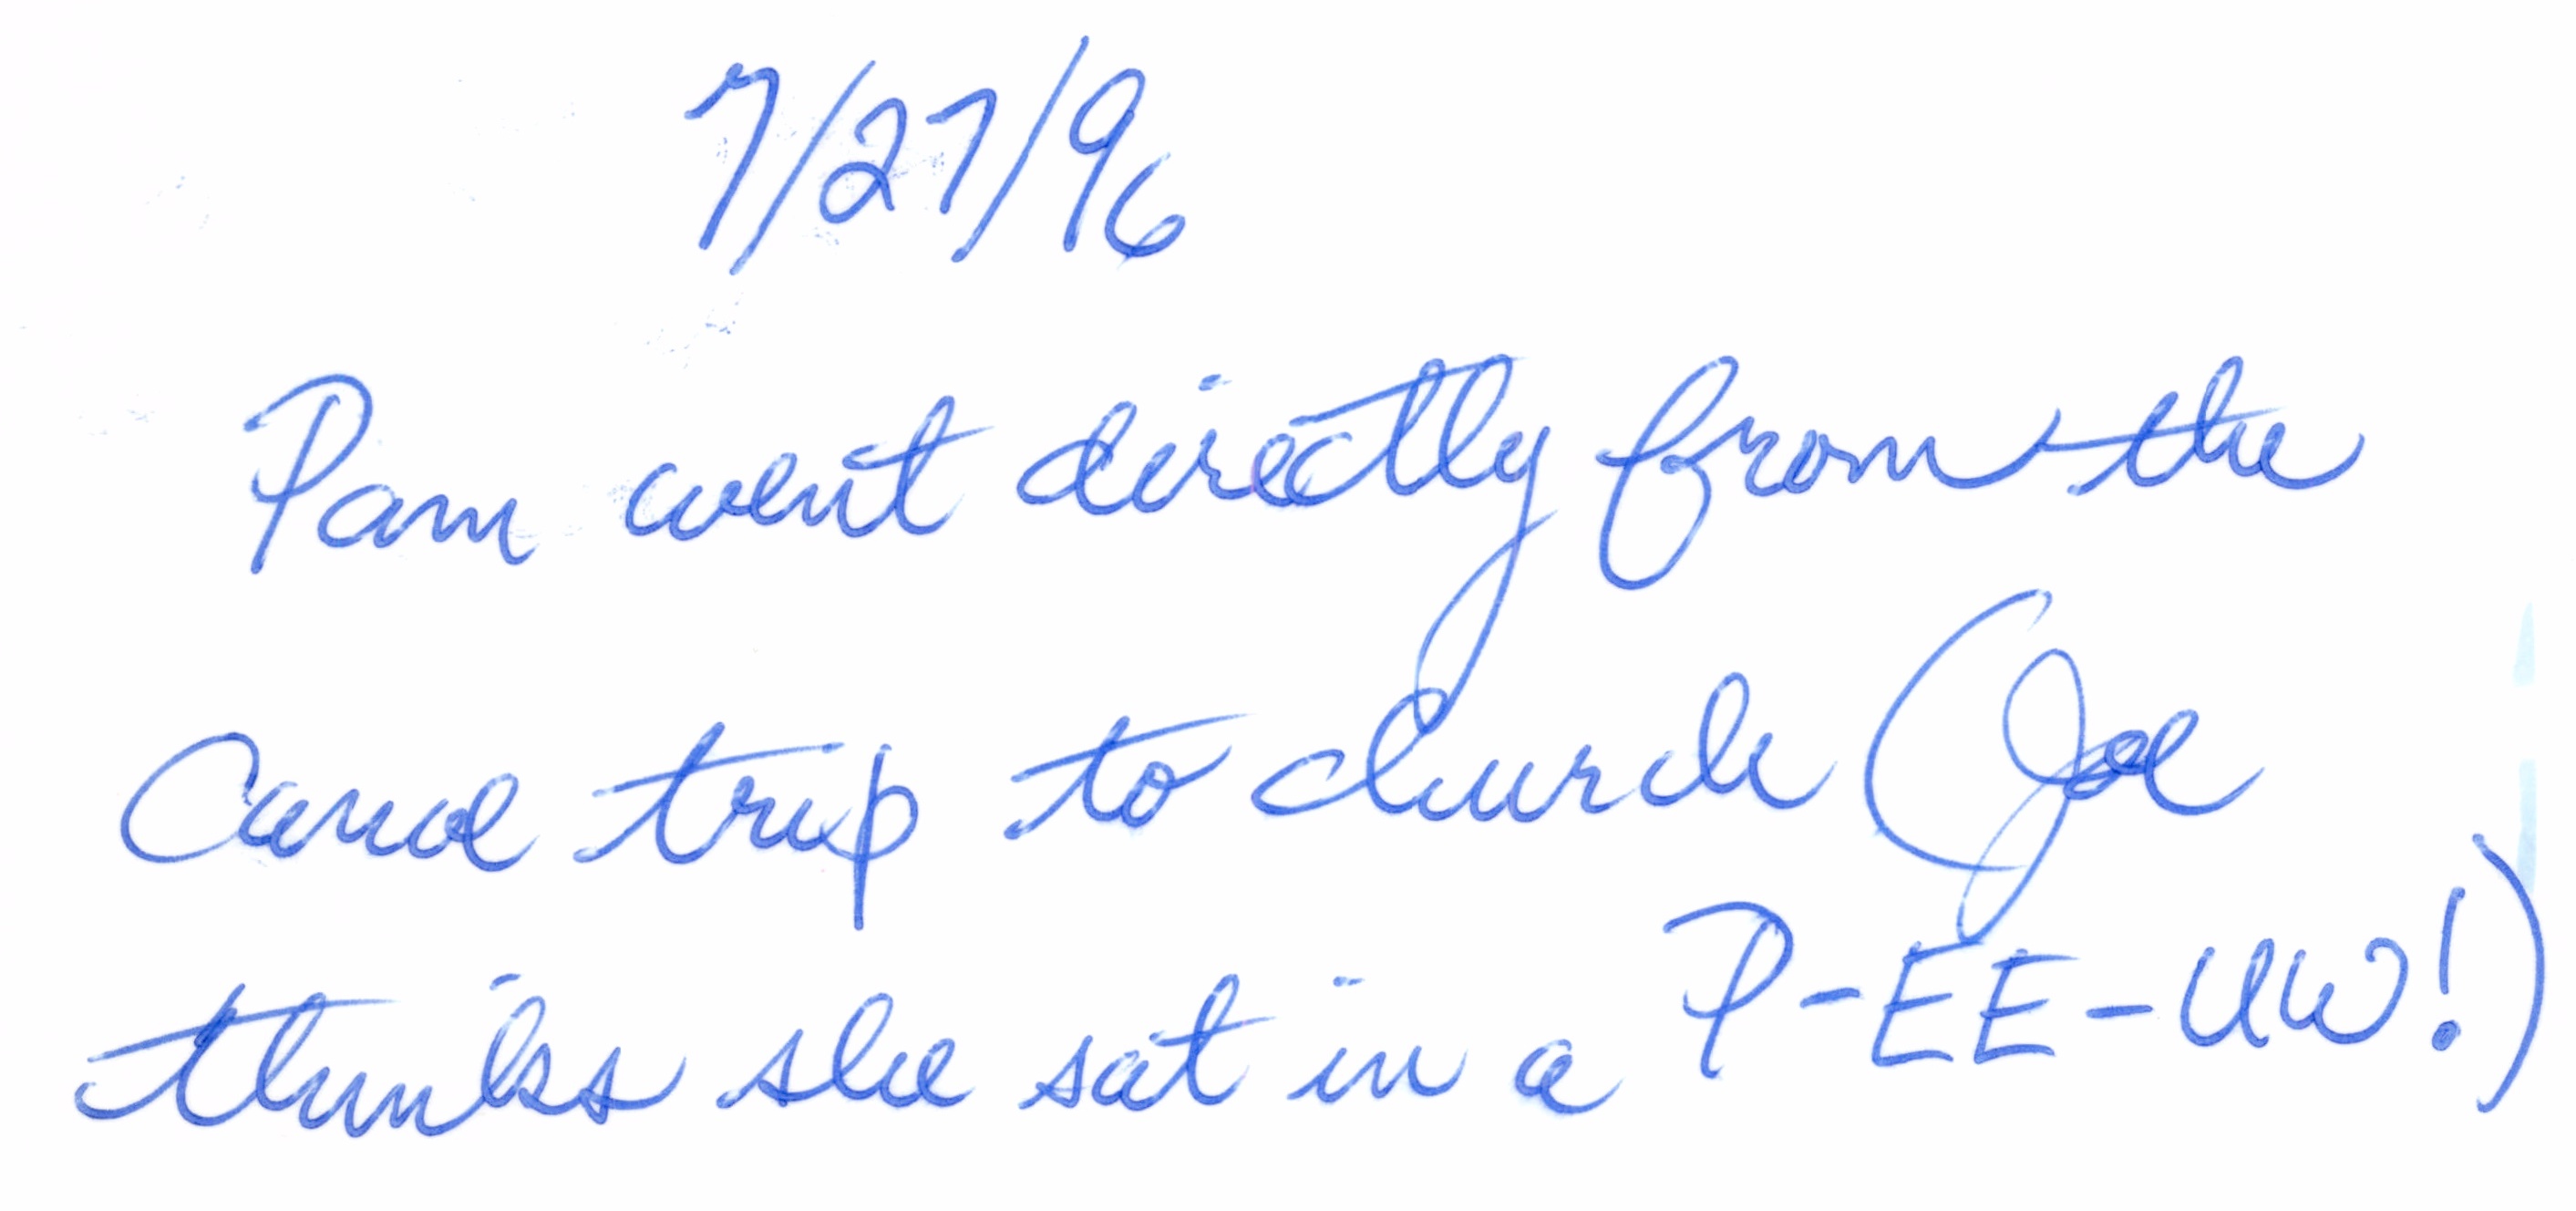 7/27/96
Pam went directly from the
Canoe trip to church (Joe
thinks she sat in a P-EE-UW!)